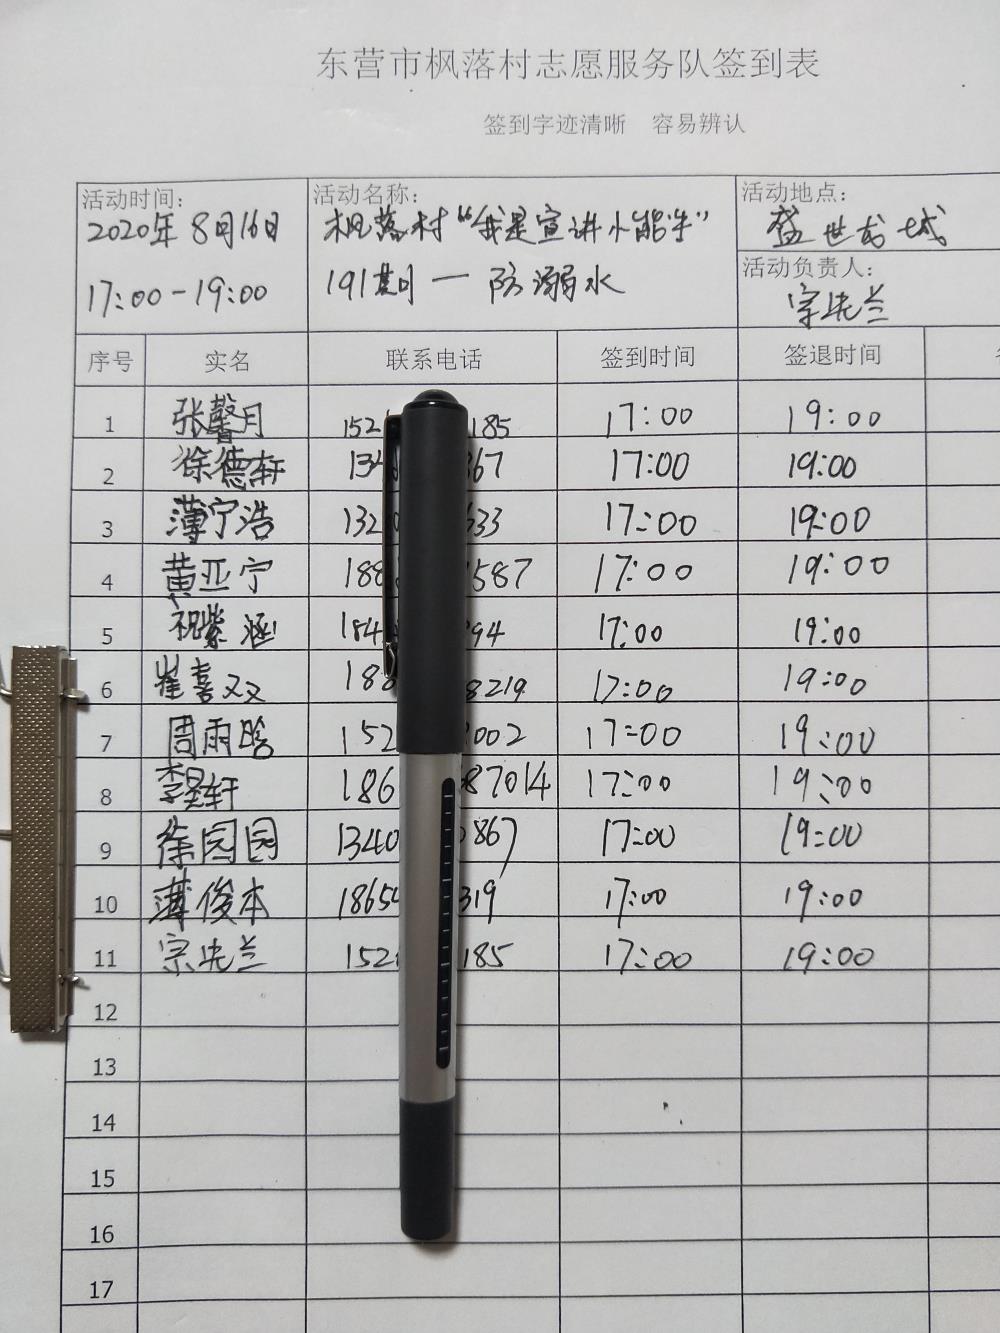 东营市枫落村志愿服务队签到表
签到字迹清晰 容易辨认
活动时间: 活动名称: 活动地点:
2020年8月16日 枫落村“我是宣讲小能手” 盛世龙城
17:00-19:00 191期一防溺水 活动负责人:
宗先兰
序号 实名 联系电话 签到时间 签退时间
1 张馨月 152 185 17:00 19:00
2 徐德轩 134 867 17:00 19:00
3 薄宁浩 132 633 17:00 19:00
4 黄亚宁 188 587 17:00 19:00
5 祝紫涵 184 94 17:00 19:00
6 崔喜双 188 8219 17:00 19:00
7 周雨晗 152 002 17:00 19:00
8 李昊轩 186 87014 17:00 19:00
9 徐园园 1340 867 17:00 19:00
10 薄俊本 1865 319 17:00 19:00
11 宗先兰 152 185 17:00 19:00
12
13
14
15
16
17